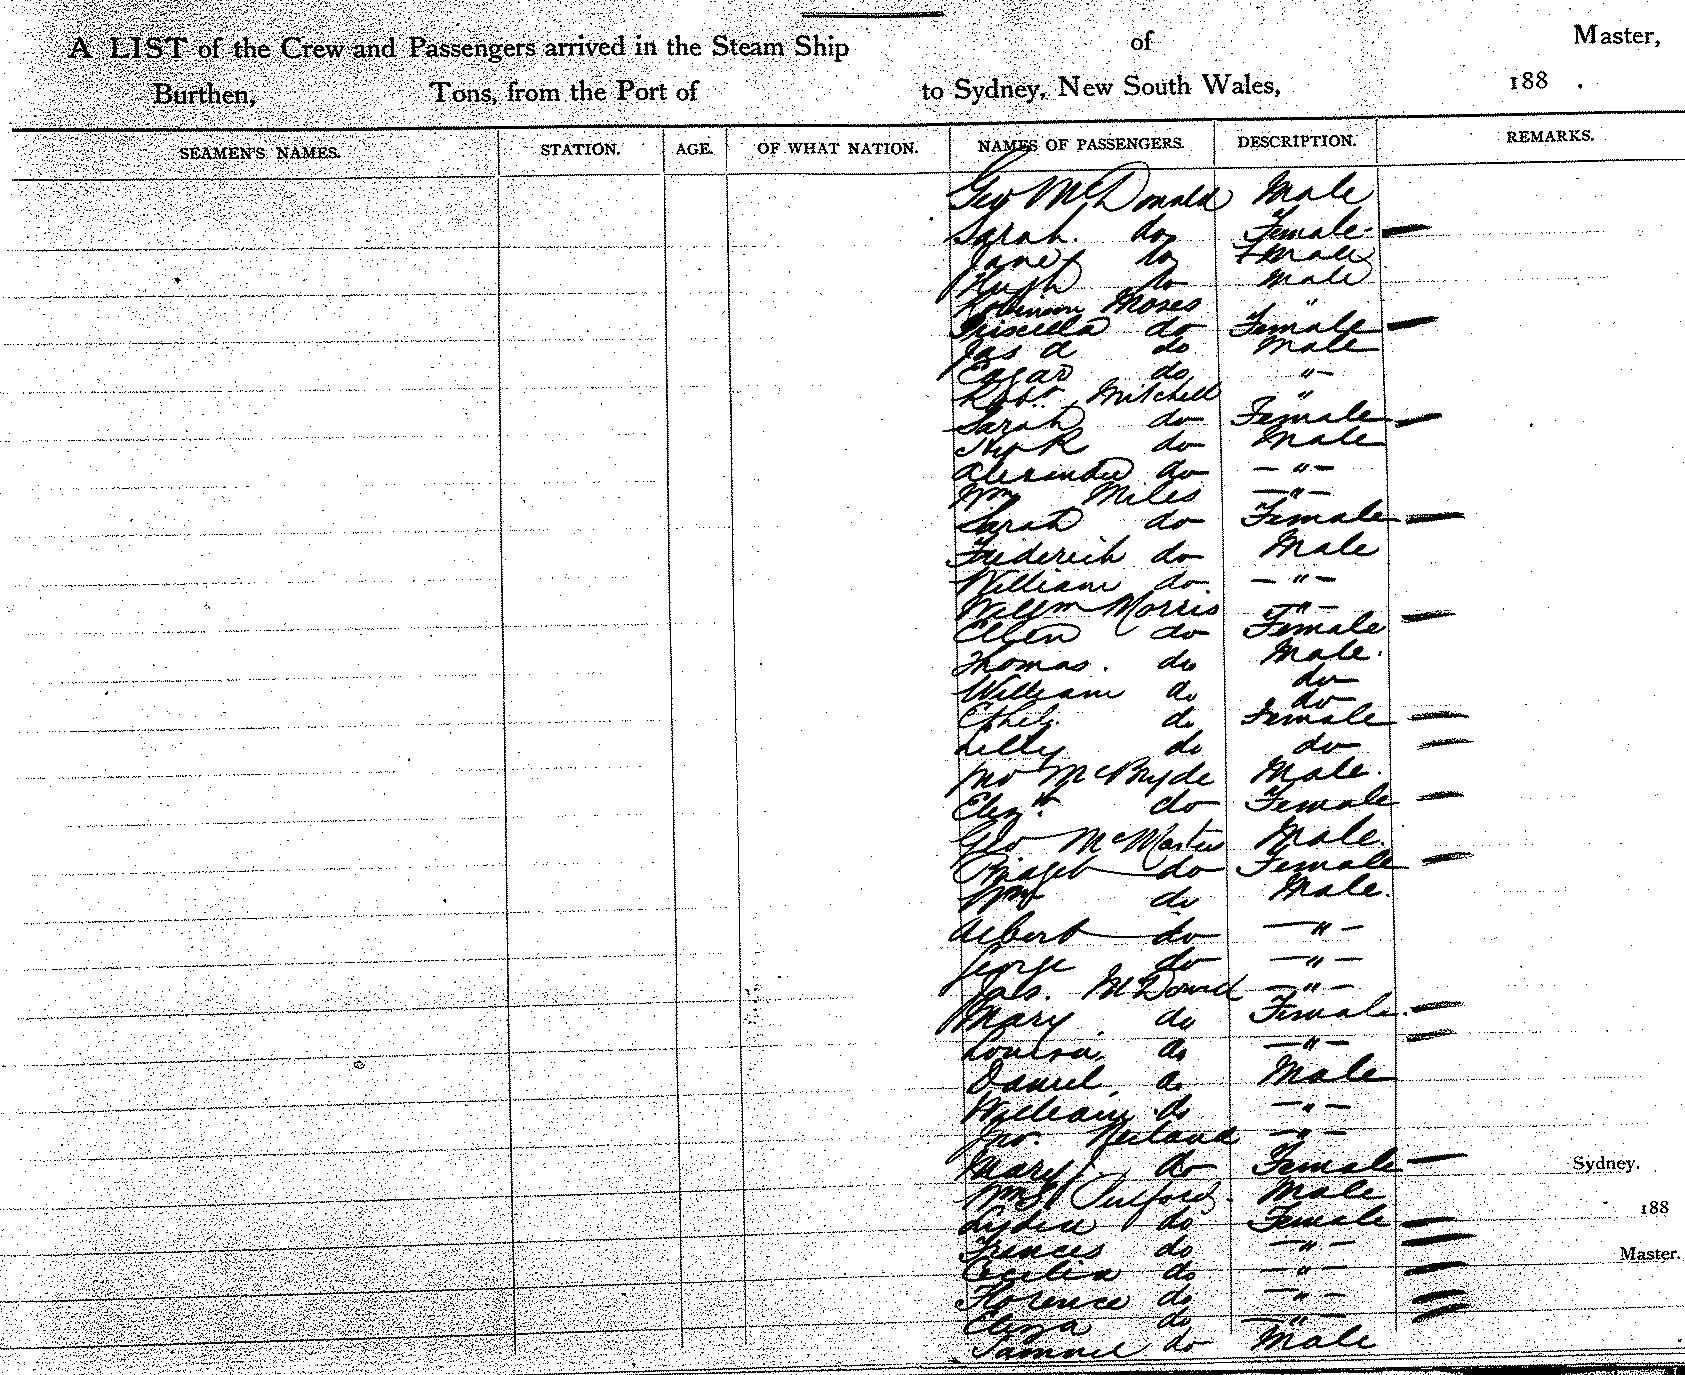 A LIST of the Crew and Passengers arrived in the Steam Ship of Master,
Burthen, Tons, from the Port of to Sydney, New South Wales, 188 .
SEAMEN'S NAMES. STATION. AGE. OF WHAT NATION. NAMES OF PASSENGERS. DESCRIPTION. REMARKS.
Geo McDonald Male
Sarah. do Female —
Jane do Female
Hugh do Male
Robinson Moses "
Priscilla do Female —
Jas A do Male
Edgar do "-
Robt Mitchell "
Sarah do Female —
do Male
Alexander do - " -
Wm Miles - " -
Sarah do Female —
Frederick do Male
William do. - " -
Willm Morris - " -
Ellen do Female —
Thomas. do Male.
William do do
Ethel. do Female —
Lilly do do —
Jno McBryde Male.
Elizth do Female —
Geo McMaster Male.
Bridget do Female —
Wm do Male.
Albert do - " -
George do - " -
Jas. - " -
Mary. do Female. —
Louisa do - " - —
Daniel do Male
William do - " -
Jno. - " -
Mary do Female — Sydney.
Wm Pulford. Male
188
Lydia do Female —
Frances do - " - —
Master.
Cecilia do - " - —
Florence do - " - —
Eliza do - " - —
Samuel do Male